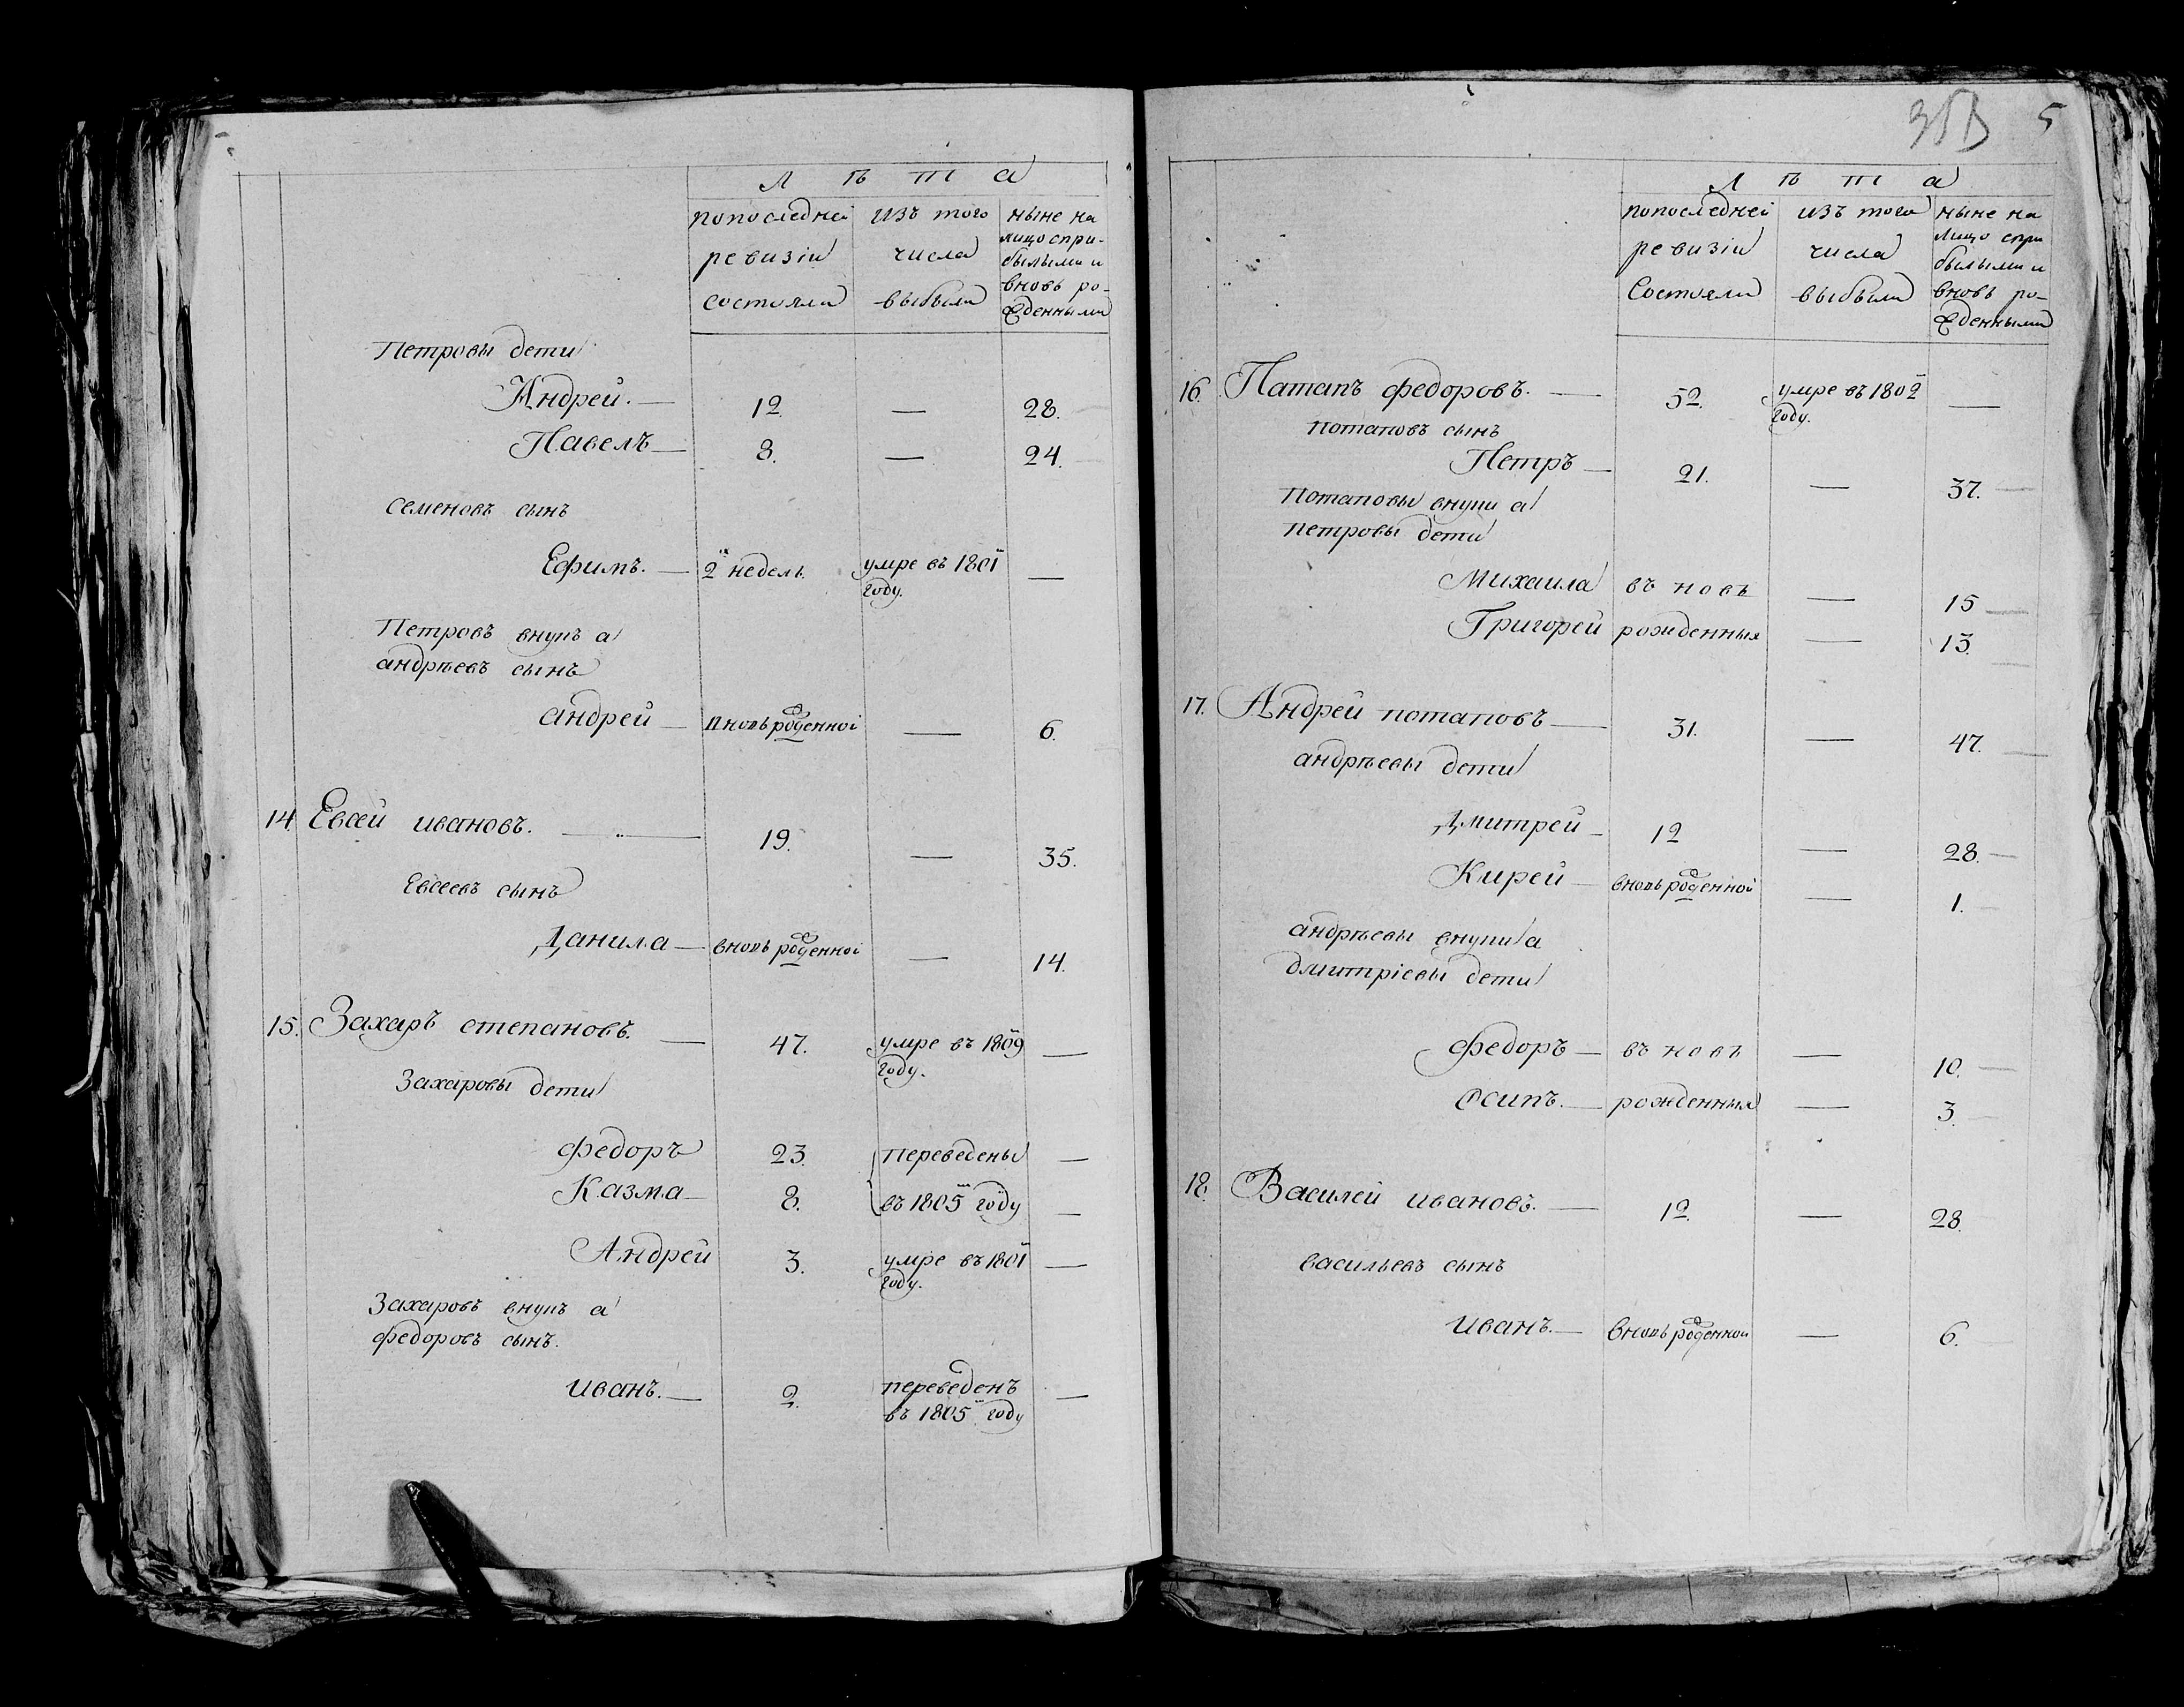 Лѣта
попоследней изъ того ныне на
лицо спри-
ревизіи числа былыми и
вновь ро-
состояли выбыли жденными
Петровы дети
Андрей. — 12. — 28.
Павелъ — 8. — 24.
семеновъ сынъ
Ефимъ. — 2хъ недель. умре въ 1801м —
году.
Петровъ внукъ а
андрѣевъ сынъ
андрей — вновьрожденной — 6.
14 Евсей ивановъ. — 19. — 35.
Евсеевъ сынъ
Данила — вновьрожденной — 14.
15. Захаръ степановъ. — 47. умре въ 1809м —
году.
Захаровы дети
Федоръ 23. переведены —
Казма — 8. въ 1805м году —
Андрей 3. умре въ 1801м —
году.
Захаровъ внукъ а
федоровъ сынъ.
иванъ. — 2. переведенъ —
въ 1805м году
5
Лѣта
попоследней изъ того ныне на
лицо спри
ревизіи числа былыми и
вновь ро-
состояли выбыли жденными
16. Патапъ федоровъ. — 52. умре въ 1802м —
году.
потаповъ сынъ
Петръ — 21. — 37.
Потаповы внуки а
петровы дети
Михаила въ новь — 15
Григорей рожденныя — 13.
17. Андрей потаповъ — 31. — 47.
андрѣевы дети
Дмитрей — 12 — 28.
Кирей — вновьрожденной — 1.
андрѣевы внуки а
дмитріевы дети
федоръ — въ новь — 10.
Осипъ. — рожденныя — 3.
18. Василей ивановъ. — 12. — 28.
васильевъ сынъ
иванъ. — вновьрожденной — 6.